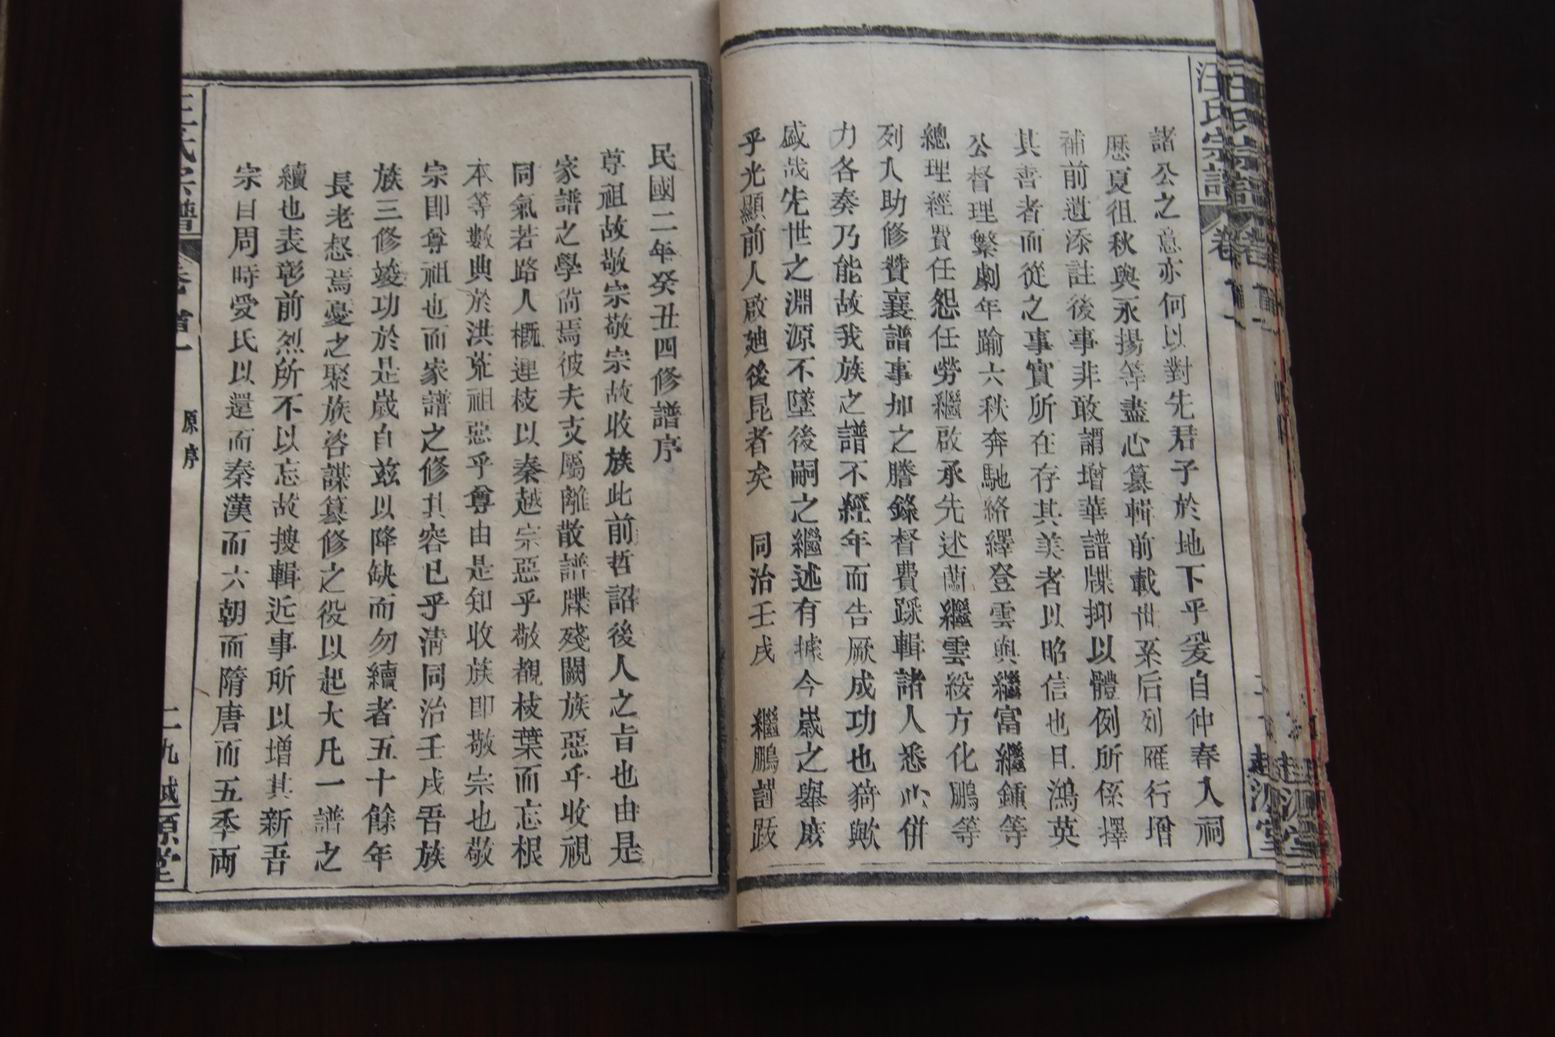 汪氏宗譜
諸公之意亦何以對先君子於地下乎爰自仲春入祠
歷夏徂秋與永揚等盡心纂輯前載世系后列雁行增
補前遺添註後事非敢謂增華譜牒抑以體例所係擇
其善者而從之事實所在存其美者以昭信也且鴻英
公督理繁劇年踰六秋奔馳絡繹登雲與繼富繼鍾等
總理經費任怨任勞繼啟承先述蘭繼雲綏方化鵬等
列入助修贊襄譜事加之謄錄督費踩輯諸人悉心併
力各奏乃能故我族之譜不經年而告厥成功也猗歟
盛哉先世之淵源不墜後嗣之繼述有據今歲之舉庶
乎光顯前人啟迪後昆者矣 同治壬戌 繼鵬謹跋
民國二年癸丑四修譜序
尊祖故敬宗敬宗故收族此前哲詔後人之旨也由是
家譜之學尚焉彼夫支屬離散譜牒殘闕族惡乎收視
同氣若路人概連枝以秦越宗惡乎敬覩枝葉而忘根
本等數典於洪荒祖惡乎尊由是知收族即敬宗也敬
宗即尊祖也而家譜之修其容已乎清同治壬戌吾族
族三修竣功於是歲自茲以降缺而勿續者五十餘年
長老惄焉憂之聚族咨謀纂修之役以起大凡一譜之
續也表彰前烈所不以忘故搜輯近事所以增其新吾
宗自周時受氏以還而秦漢而六朝而隋唐而五季兩
汪氏宗譜 卷首一 原序 二九 越源堂